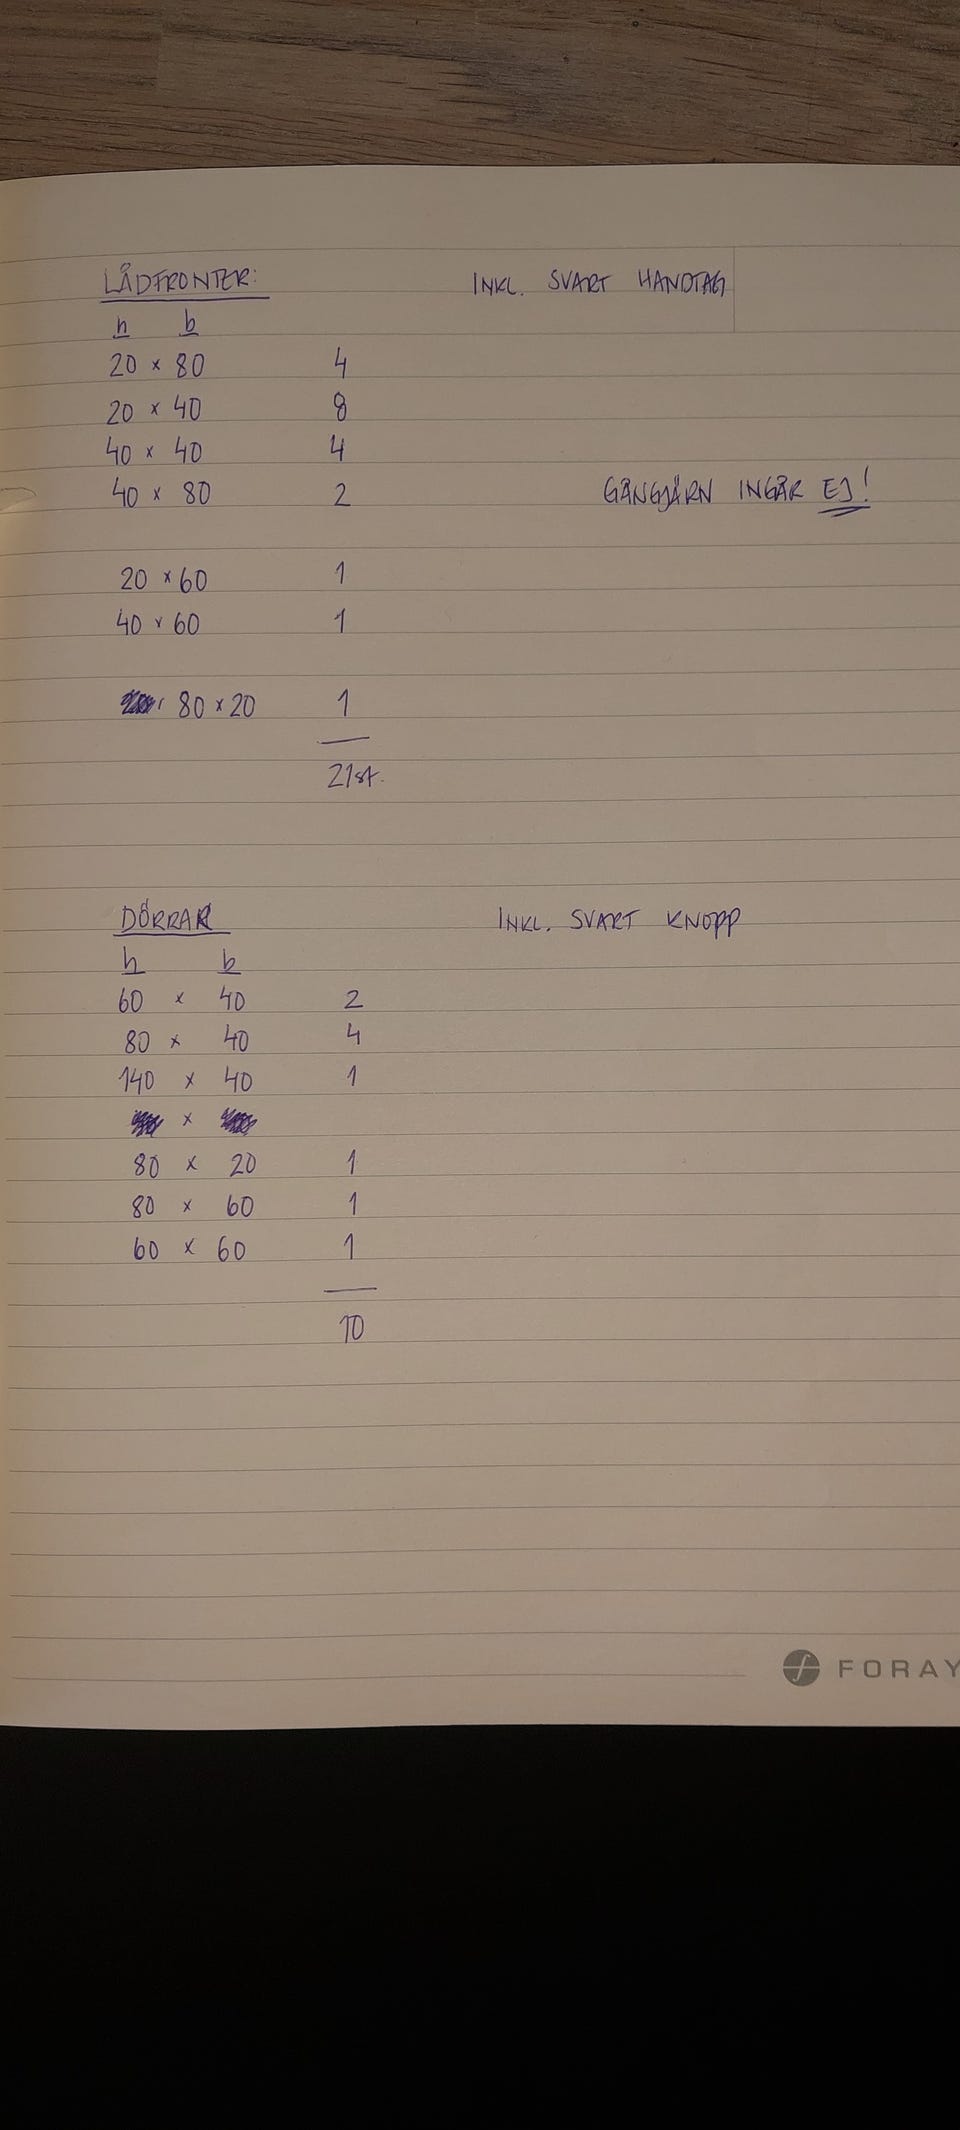 LÅDFRONTER: INKL. SVART HANDTAG
h b
20 x 80 4
20 x 40 8
40 x 40 4
40 x 80 2 GÅNGJÄRN INGÅR EJ!
20 x 60 1
40 x 60 1
80 x 20 1
21st.
DÖRRAR INKL. SVART KNOPP
h b
60 x 40 2
80 x 40 4
140 x 40 1
x
80 x 20 1
80 x 60 1
60 x 60 1
10
FORAY